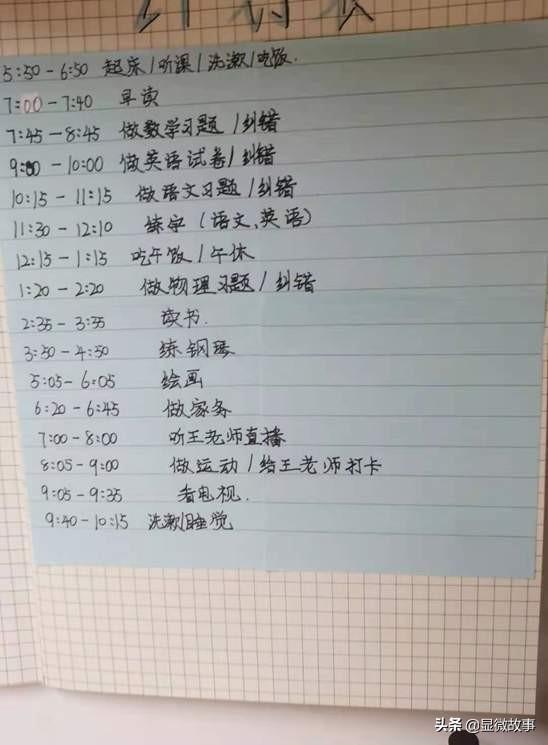 计划表
5:50-6:50 起床/听课/洗漱/吃饭.
7:00-7:40 早读
7:45-8:45 做数学习题/纠错
9:00-10:00 做英语试卷/纠错
10:15-11:15 做语文习题/纠错
11:30-12:10 练字(语文、英语)
12:15-1:15 吃午饭/午休
1:20-2:20 做物理习题/纠错
2:35-3:35 读书.
3:50-4:50 练钢琴
5:05-6:05 绘画
6:20-6:45 做家务
7:00-8:00 听王老师直播
8:05-9:00 做运动/给王老师打卡
9:05-9:35 看电视.
9:40-10:15 洗漱/睡觉
头条 @显微故事